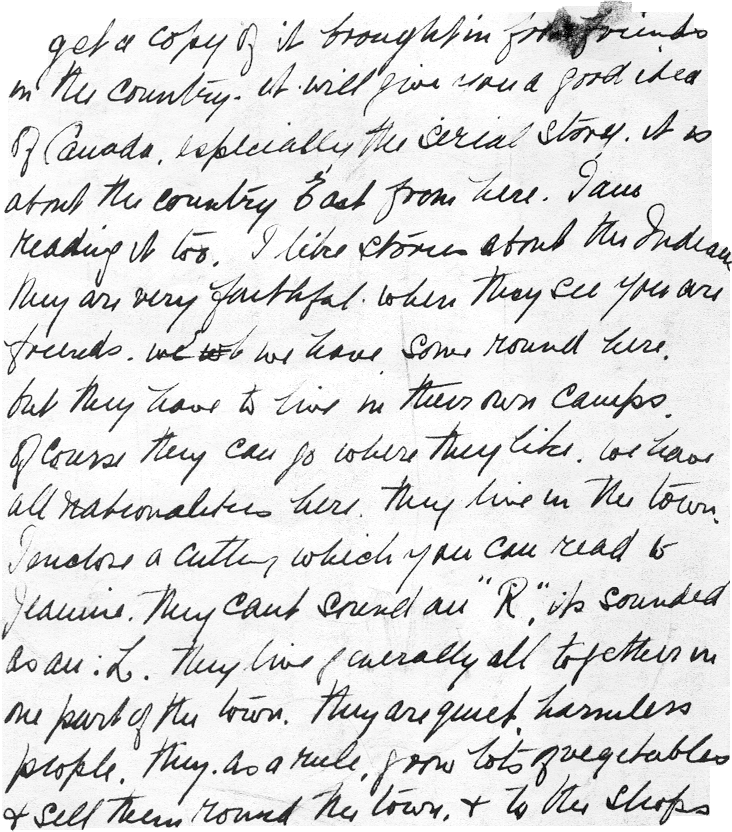 get a copy of it brought in from friends
in the country. it will give you a good idea
of Canada, especially the serial story. it is
about the country East from here. I am
reading it too. I like stories about the Indians
they are very faithful. when they see you are
friends. we have some round here.
but they have to live in their own camps.
of course they can go where they like. we have
all nationalities here. they live in the town.
I enclose a cutting which you can read to
Jeannie. they cant sound an "R," its sounded
as an: L. they live generally all together in
one part of the town. they are quiet harmless
people. they. as a rule, grow lots of vegetables
& sell them round the town. & to the shops